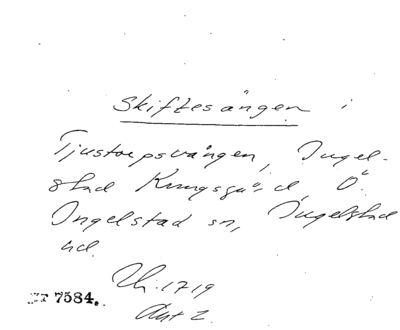 Skiftesången i
Tjustorpsvången, Ingel-
stad Kungsgård, Ö.
Ingelstad sn, Ingelstad
hd.
Uh. 1719
Avt 2.
7584.